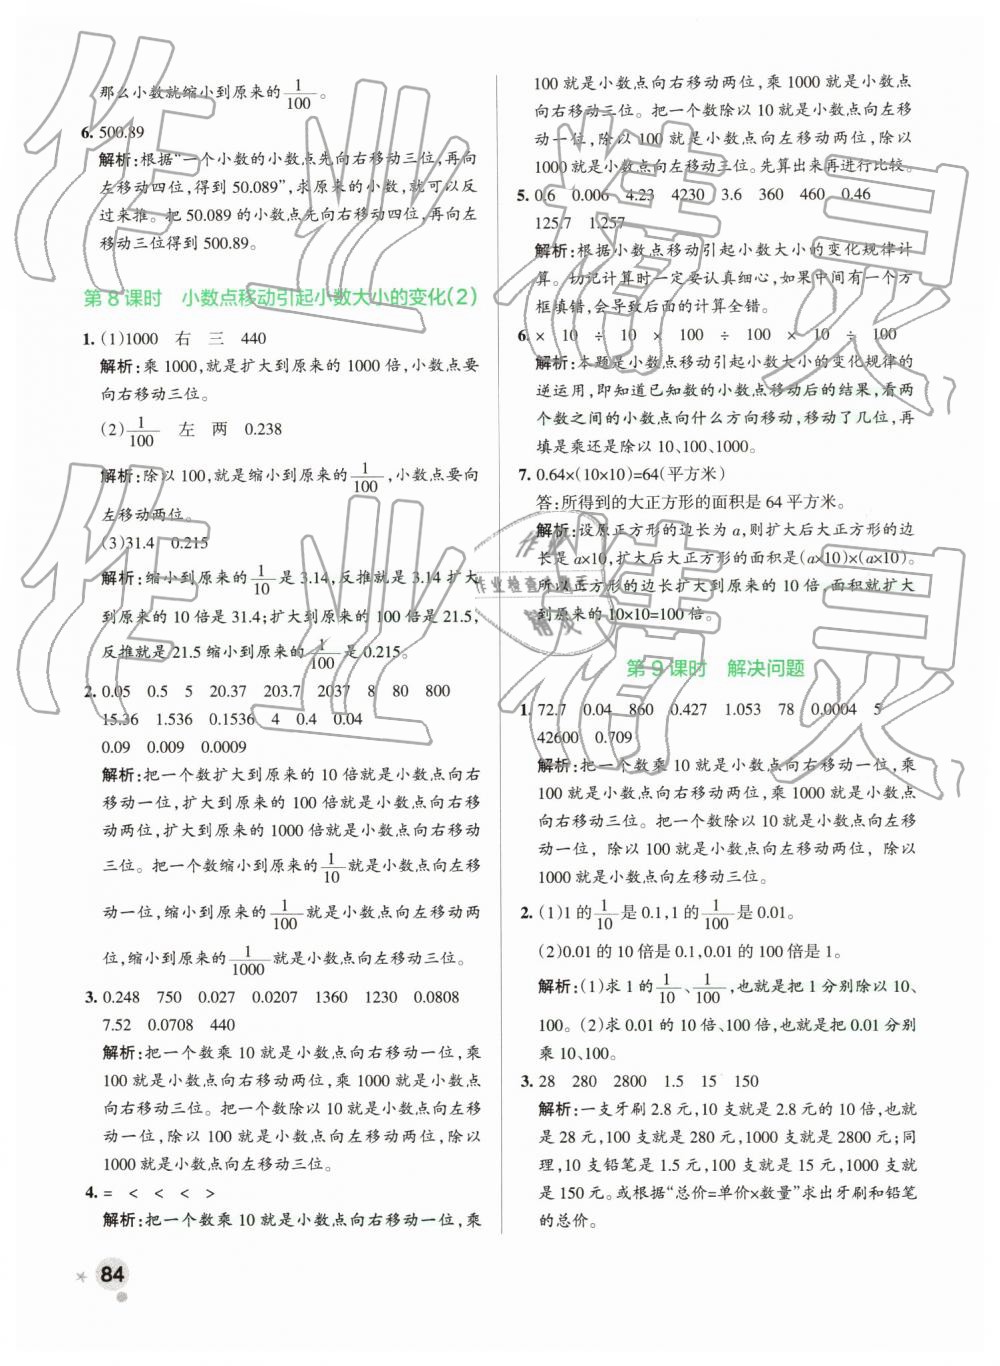 那么小数就缩小到原来的1/100。
6. 500.89
解析:根据“一个小数的小数点先向右移动三位,再向
左移动四位,得到 50.089”,求原来的小数,就可以反
过来推。把 50.089 的小数点先向右移动四位,再向左
移动三位得到 500.89。
第 8 课时 小数点移动引起小数大小的变化(2)
1. (1)1000 右 三 440
解析:乘 1000,就是扩大到原来的 1000 倍,小数点要
向右移动三位。
(2)1/100 左 两 0.238
解析:除以 100,就是缩小到原来的1/100,小数点要向
左移动两位。
(3)31.4 0.215
解析:缩小到原来的1/10是 3.14,反推就是 3.14 扩大
到原来的 10 倍是 31.4;扩大到原来的 100 倍是 21.5,
反推就是 21.5 缩小到原来的1/100是 0.215。
2. 0.05 0.5 5 20.37 203.7 2037 8 80 800
15.36 1.536 0.1536 4 0.4 0.04
0.09 0.009 0.0009
解析:把一个数扩大到原来的 10 倍就是小数点向右
移动一位,扩大到原来的 100 倍就是小数点向右移
动两位,扩大到原来的 1000 倍就是小数点向右移动
三位。把一个数缩小到原来的1/10就是小数点向左移
动一位,缩小到原来的1/100就是小数点向左移动两
位,缩小到原来的1/1000就是小数点向左移动三位。
3. 0.248 750 0.027 0.0207 1360 1230 0.0808
7.52 0.0708 440
解析:把一个数乘 10 就是小数点向右移动一位,乘
100 就是小数点向右移动两位,乘 1000 就是小数点
向右移动三位。把一个数除以 10 就是小数点向左移
动一位,除以 100 就是小数点向左移动两位,除以
1000 就是小数点向左移动三位。
4. = < < < >
解析:把一个数乘 10 就是小数点向右移动一位,乘
84
100 就是小数点向右移动两位,乘 1000 就是小数点
向右移动三位。把一个数除以 10 就是小数点向左移
动一位,除以 100 就是小数点向左移动两位,除以
1000 就是小数点向左移动三位。先算出来再进行比较。
5. 0.6 0.006 4.23 4230 3.6 360 460 0.46
125.7 1.257
解析:根据小数点移动引起小数大小的变化规律计
算。切记计算时一定要认真细心,如果中间有一个方
框填错,会导致后面的计算全错。
6. × 10 ÷ 10 × 100 ÷ 100 × 10 ÷ 100
解析:本题是小数点移动引起小数大小的变化规律的
逆运用,即知道已知数的小数点移动后的结果,看两
个数之间的小数点向什么方向移动,移动了几位,再
填是乘还是除以 10、100、1000。
7. 0.64×(10×10)=64(平方米)
答:所得到的大正方形的面积是 64 平方米。
解析:设原正方形的边长为 a,则扩大后大正方形的边
长是 a×10,扩大后大正方形的面积是(a×10)×(a×10)。
所以正方形的边长扩大到原来的 10 倍,面积就扩大
到原来的 10×10=100 倍。
第 9 课时 解决问题
1. 72.7 0.04 860 0.427 1.053 78 0.0004 5
42600 0.709
解析:把一个数乘 10 就是小数点向右移动一位,乘
100 就是小数点向右移动两位,乘 1000 就是小数点
向右移动三位。把一个数除以 10 就是小数点向左移
动一位,除以 100 就是小数点向左移动两位,除以
1000 就是小数点向左移动三位。
2. (1)1 的1/10是 0.1,1 的1/100是 0.01。
(2)0.01 的 10 倍是 0.1,0.01 的 100 倍是 1。
解析:(1)求 1 的1/10、1/100,也就是把 1 分别除以 10、
100。(2)求 0.01 的 10 倍、100 倍,也就是把 0.01 分别
乘 10、100。
3. 28 280 2800 1.5 15 150
解析:一支牙刷 2.8 元,10 支就是 2.8 元的 10 倍,也就
是 28 元,100 支就是 280 元,1000 支就是 2800 元;同
理,10 支铅笔是 1.5 元,100 支就是 15 元,1000 支就
是 150 元。或根据“总价=单价×数量”求出牙刷和铅笔
的总价。
作业精灵
作业精灵
作业检查小助手
精灵